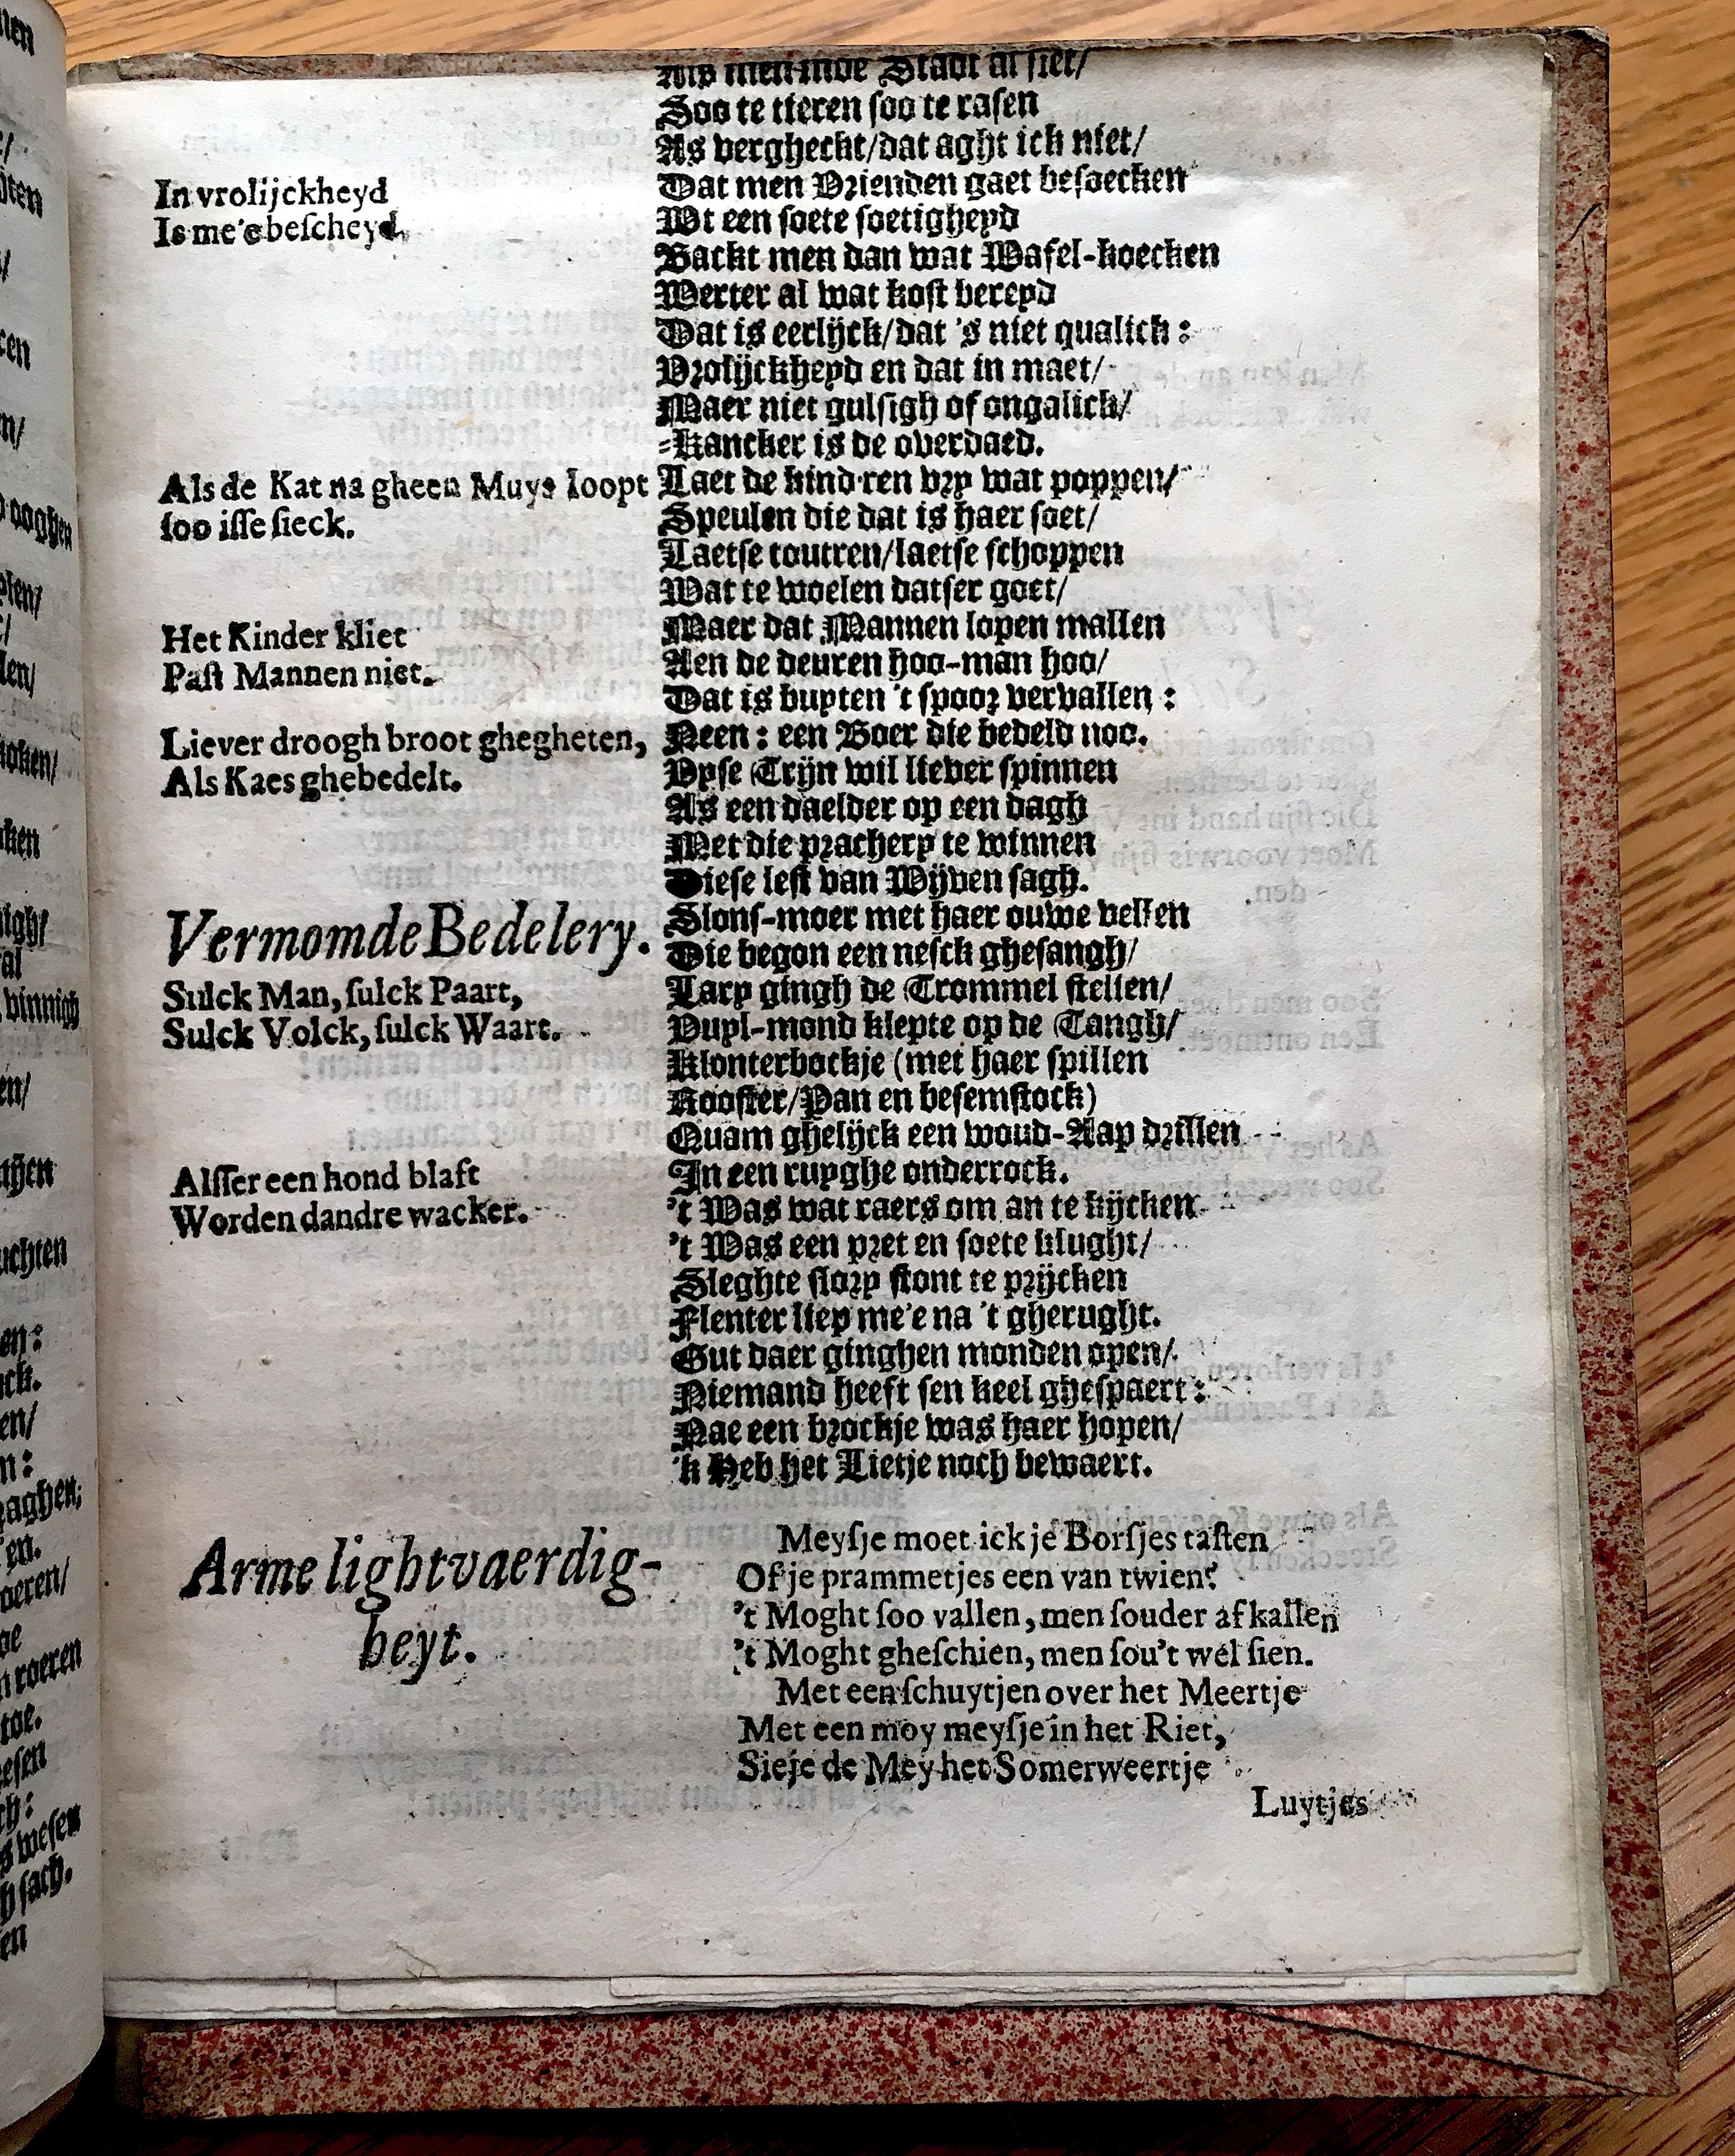 Als men inde Stadt al siet/
Soo te tieren soo te rasen
As vergheckt/dat aght ick niet/
In vrolijckheyd
Is me'e beſcheyd.
Dat men Vrienden gaet besoecken
Wt een soete soetigheyd
Backt men dan wat Wafel-koecken
Werter al wat kost bereyd
Dat is eerlijck/dat 's niet qualick:
Vrolijckheyd en dat in maet/
Maer niet gulsigh of ongalick/
-Kancker is de overdaed.
Als de Kat na gheen Muys loopt
ſoo iſſe ſieck.
Laet de kind'ren vry wat poppen/
Speulen die dat is haer soet/
Laetse toutren/laetse schoppen
Wat te woelen datser goet/
Het Kinder kliet
Paſt Mannen niet.
Maer dat Mannen lopen mallen
Aen de deuren hoo-man hoo/
Dat is buyten 't spoor vervallen:
Liever droogh broot ghegheten,
Als Kaes ghebedelt.
Neen: een Boer die bedeld noo.
Vyse Trijn wil liever spinnen
As een daelder op een dagh
Met die prachery te winnen
Diese lest van Wijven sagh.
Vermomde Bedelery.
Slons-moer met haer ouwe vellen
Die begon een nesck ghesangh/
Sulck Man, ſulck Paart,
Sulck Volck, ſulck Waart.
Lary gingh de Trommel stellen/
Vuyl-mond klepte op de Tangh/
Klonterbockje (met haer spillen
Rooster/Pan en besemstock)
Quam ghelijck een woud-Aap drillen
Alſſer een hond blaft
Worden dandre wacker.
In een ruyghe onderrock.
't Was wat raers om an te kijcken
't Was een pret en soete klught/
Sleghte slory stont te prijcken
Flenter liep me'e na 't gherught.
Gut daer ginghen monden open/
Niemand heeft sen keel ghespaert:
Nae een brockje was haer hopen/
'k Heb het Lietje noch bewaert.
Arme lightvaerdig-
heyt.
Meyſje moet ick je Borſjes taſten
Of je prammetjes een van twien?
't Moght ſoo vallen, men ſouder af kallen
't Moght gheſchien, men ſou't wel ſien.
Met een ſchuytjen over het Meertje
Met een moy meyſje in het Riet,
Sieje de Mey het Somerweertje
Luytjes